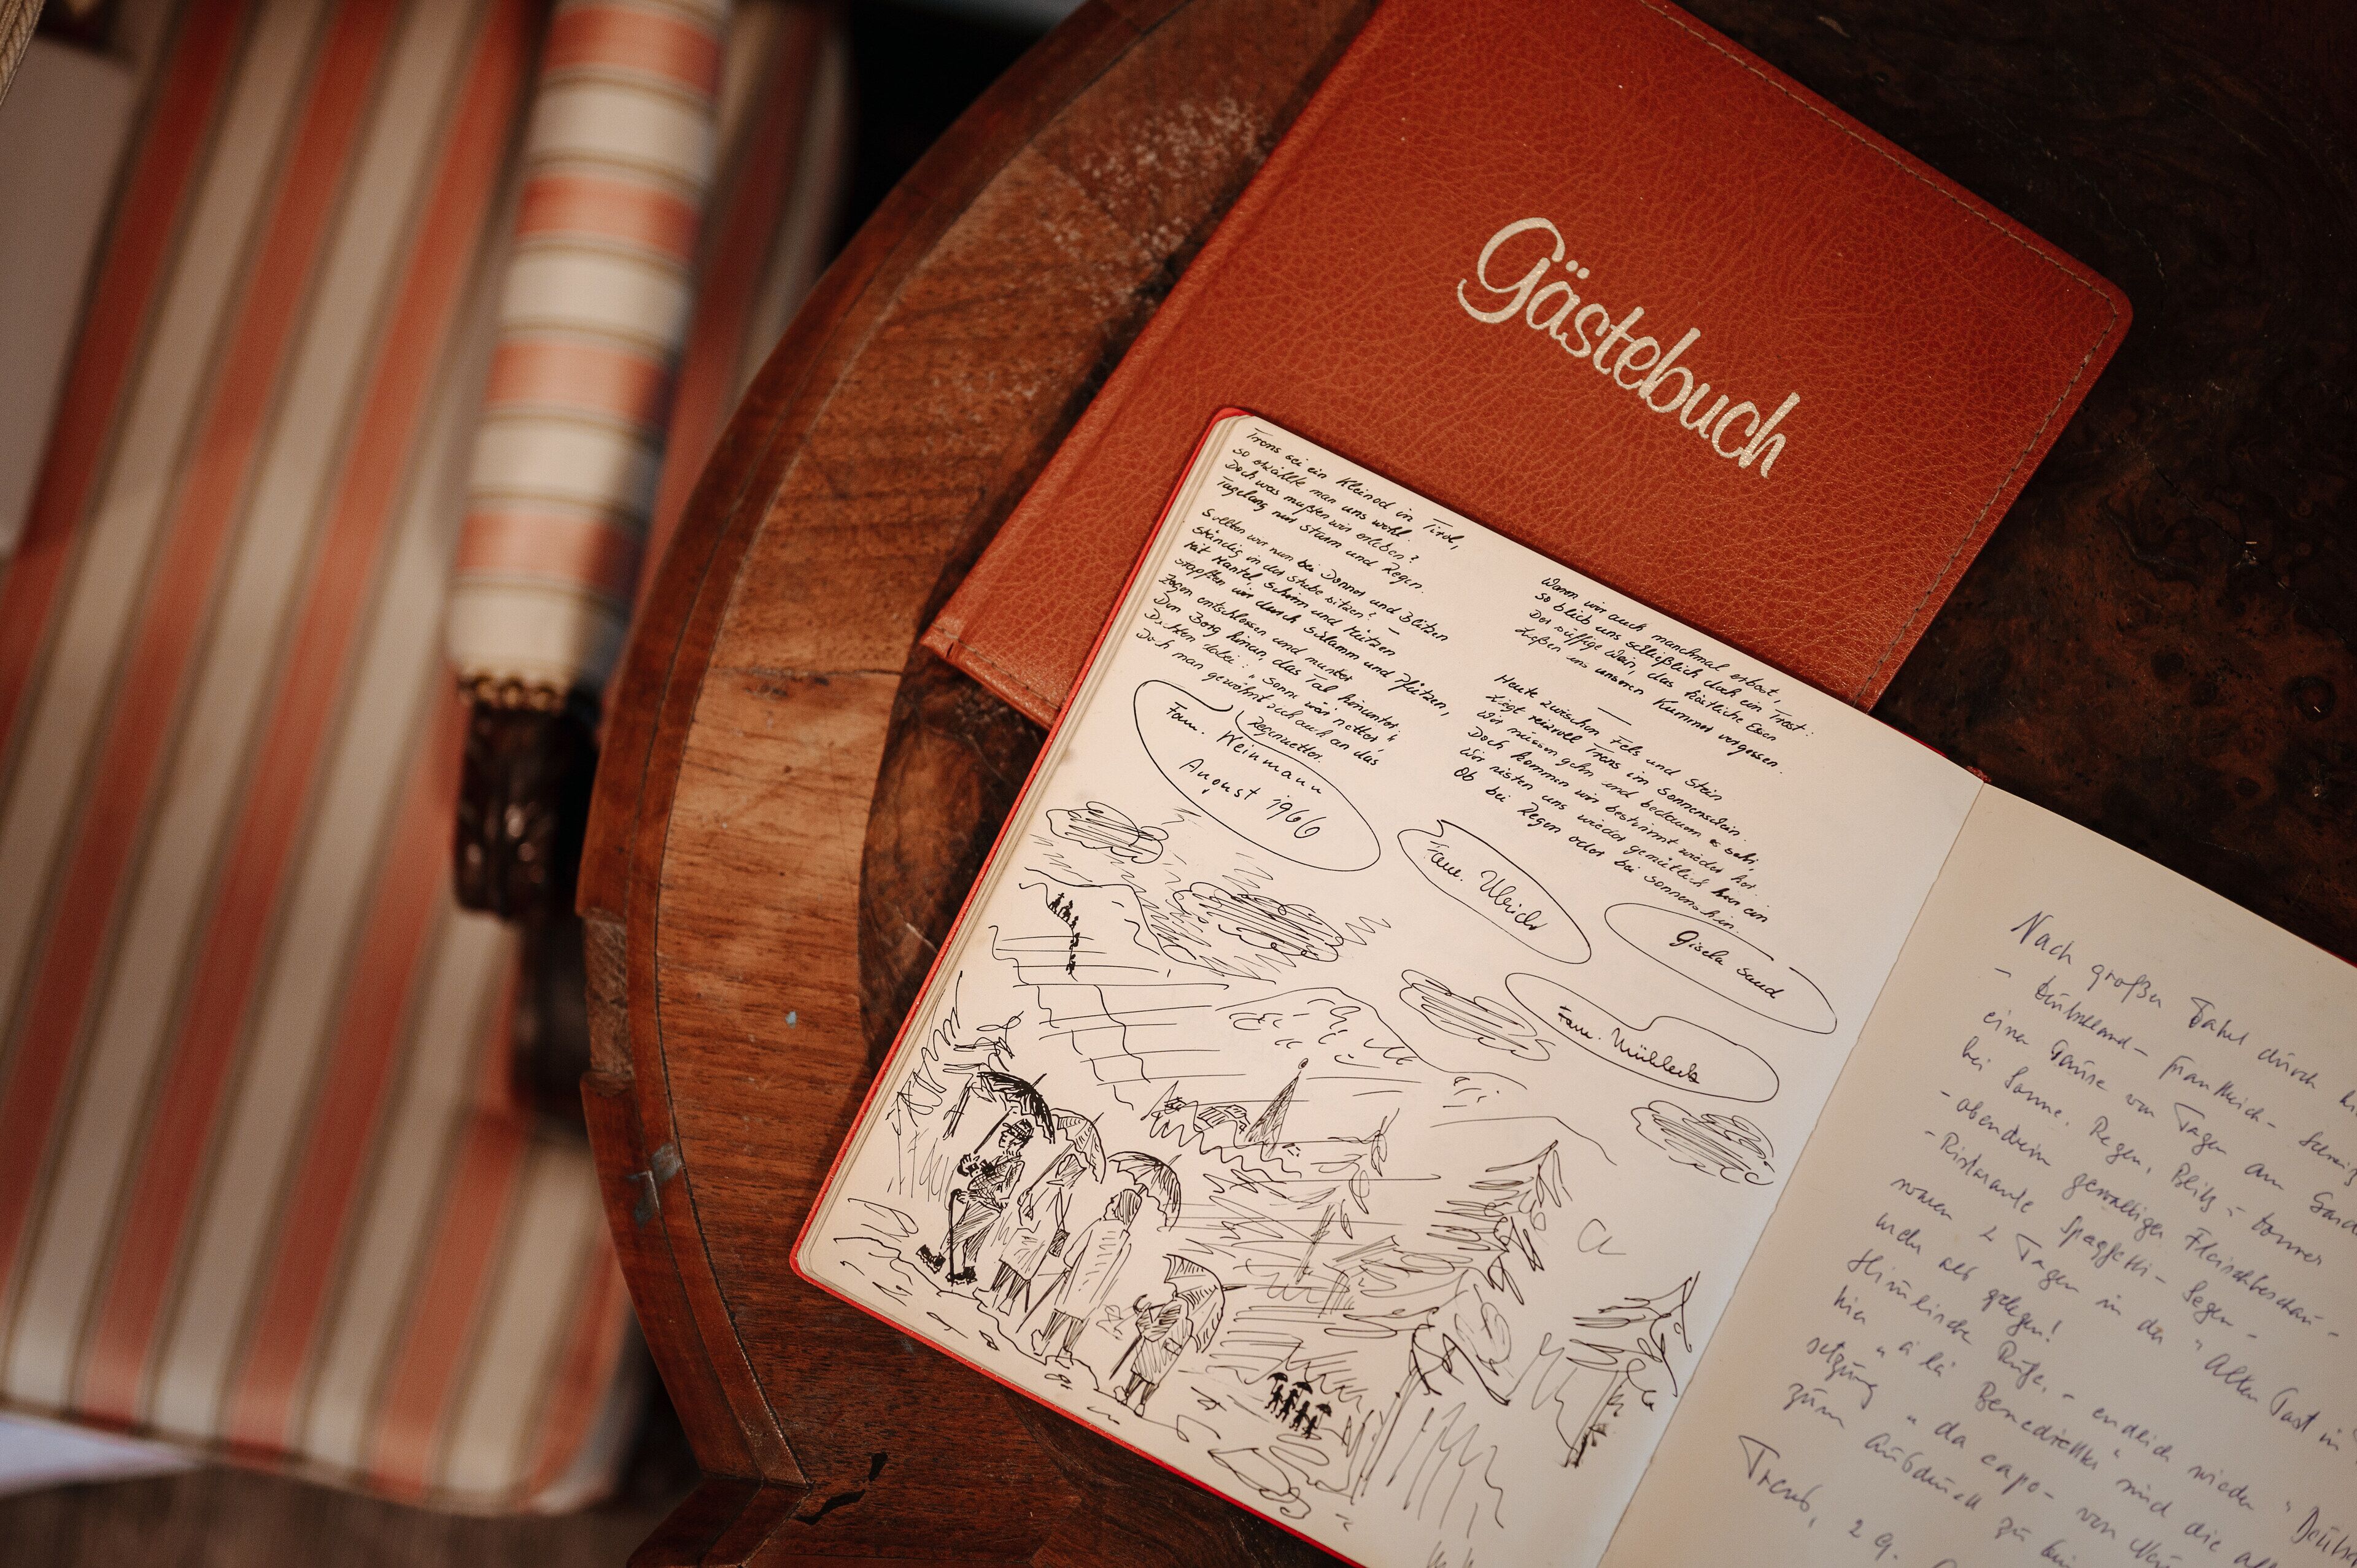 Gästebuch
Trens sei ein Kleinod in Tirol,
so erzählte man uns wohl.
Doch was mußten wir erleben?
Tagelang nur Sturm und Regen.
Sollten wir nun bei Donner und Blitzen
ständig in der Stube sitzen? –
Mit Mantel, Schirm und Mützen
stapften wir durch Schlamm und Pfützen,
zogen entschlossen und munter
Den Berg hinan, das Tal hinunter.
Dachten dabei: "Sonne wär netter",
Doch man gewöhnt sich auch an das
Regenwetter.
Fam. Weinmann
August 1966
Waren wir auch manchmal erbost,
so blieb uns schließlich doch ein Trost:
Der süffige Wein, das köstliche Essen
ließen uns unseren Kummer vergessen.
Heute zwischen Fels und Stein
liegt reizvoll Trens im Sonnenschein.
Wir müssen gehn und bedauern es sehr,
Doch kommen wir bestimmt wieder her.
Wir nisten uns wieder gemütlich hier ein
Ob bei Regen oder bei Sonnenschein.
Fam. Ulrich
Gisela Sand
Fam. Mühleck
Nach großer Fahrt durch
– Deutschland – Frankreich – Schweiz
einer Pause von Tagen am Garda
bei Sonne, Regen, Blitz – Donner
– obendrein gewaltiger Fleischbeschau –
– Ristorante Spagetti – Segen –
waren 2 Tagen in der "Alten Post in
mehr als gelegen!
Himmlische Ruhe, – endlich wieder "Deutsch
hier "a la Benedikter" sind die
setzung "da capo – von
zum Ausdruck zu
Trens, 29.